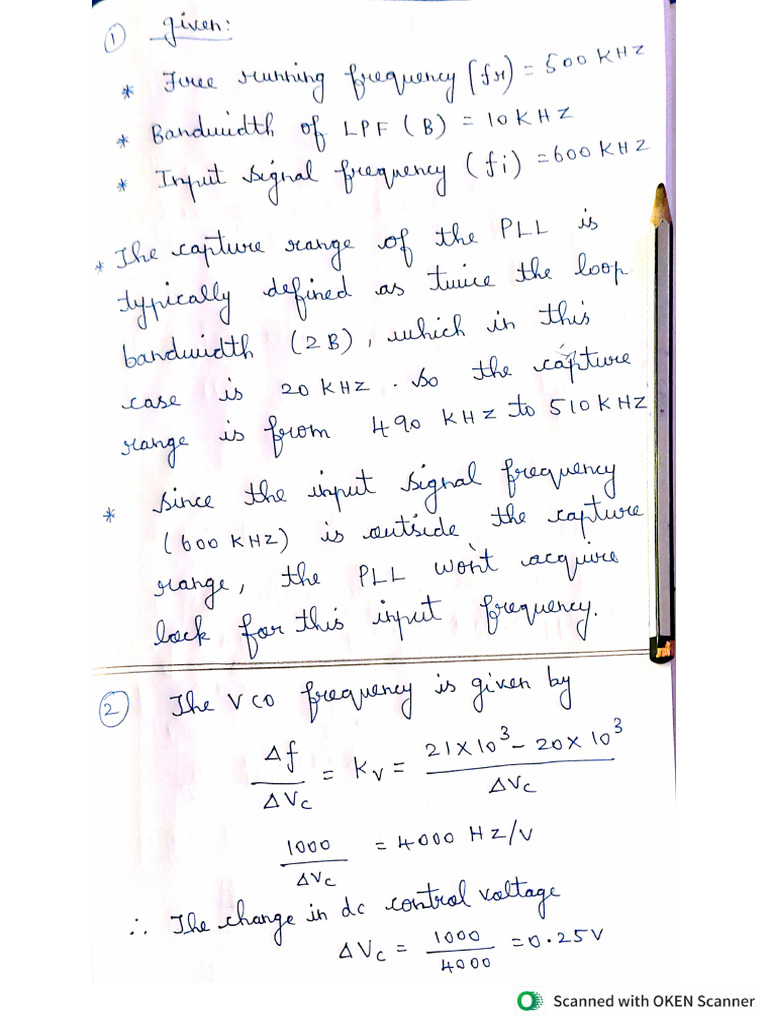 ① given:
* Free running frequency (fr) = 500 KHZ
* Bandwidth of LPF (B) = 10 KHZ
* Input signal frequency (fi) = 600 KHZ
* The capture range of the PLL is
typically defined as twice the loop
bandwidth (2B), which in this
case is 20 KHZ. So the capture
range is from 490 KHZ to 510 KHZ
* since the input signal frequency
(600 KHZ) is outside the capture
range, the PLL won't acquire
lock for this input frequency.
② The VCO frequency is given by
Δf / ΔVc = Kv = 21×10³ – 20×10³ / ΔVc
1000 / ΔVc = 4000 HZ/V
∴ The change in dc control voltage
ΔVc = 1000 / 4000 = 0.25V
Scanned with OKEN Scanner